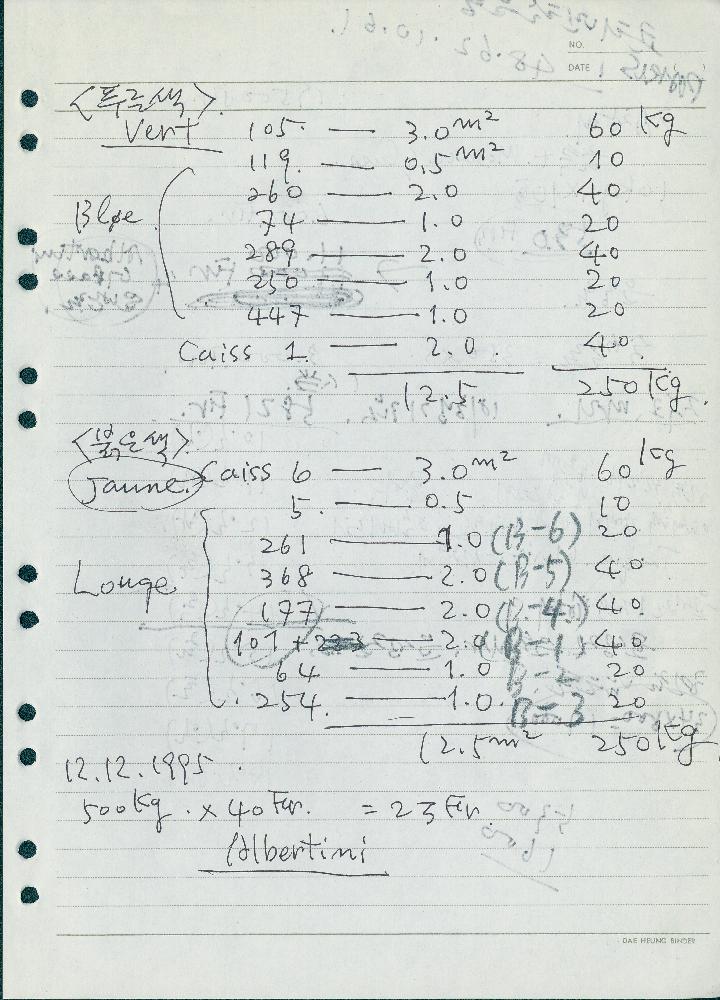 NO.
DATE ( )
<푸른색>
Vert 105. — 3.0m² 60 Kg
119. — 0.5m² 10
Bloe 260 — 2.0 40
74 — 1.0 20
289 — 2.0 40
250 — 1.0 20
447 — 1.0 20
Caiss 1 — 2.0 40
12.5 250Kg
<붉은색>
Jaune. Caiss 6 — 3.0m² 60 Kg
5. — 0.5 10
261 — 1.0 (B-6) 20
Louge 368 — 2.0 (B-5) 40
177 — 2.0 (B-4) 40
101 + — 2.0 B-1 40
64 — 1.0 20
254. — 1.0. B-3 20
12.5m² 250Kg
12.12.1995.
500Kg. x 40 Fr. = 23 Fr.
Albertini
DAE HEUNG BINDER